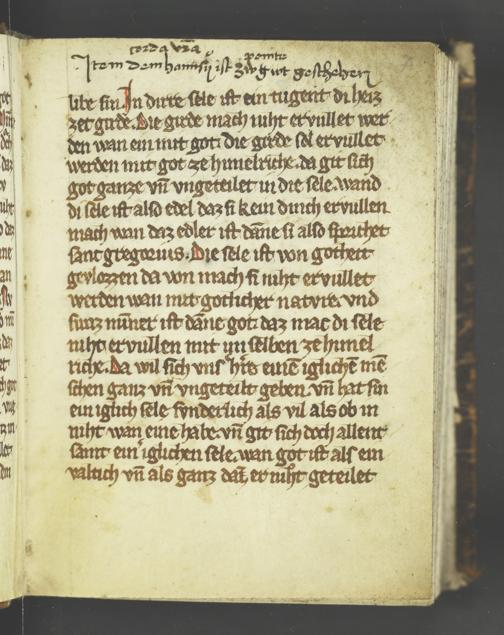 corda vr̄a
Item dem hannsſ iſt zw gwt geſchehen
libe ſin. In dirre ſele iſt ein tugent di heiz
zet girde. Die girde mach niht ervullet wer
den wan ein mit got. di girde ſol ervullet
werden mit got ze himelriche. da git ſich
got ganze vn̄ vngeteilet in die ſele. wand
di ſele iſt alſo edel daz ſi kein dinch ervullen
mach wan daz edler iſt dāne ſi alſo ſprichet
ſant gregorius. Die ſele iſt von gotheit
gevlozzen da von mach ſi niht ervullet
werden wan mit gotlicher natvre. vnd
ſwaz minner iſt dāne got daz mac di ſele
niht ervullen mit im ſelben ze himel
riche. Da wil ſich vnſ h̄re eineē iglichē mē
ſchen ganz vn̄ vngeteilt geben. vn̄ hat ſin
ein iglich ſele ſvnderlich als vil als ob in
niht wan eine habe. vn̄ git ſich doch allent
ſamt ein iglichen ſele. wan got iſt alſ ein
valtich vn̄ als ganz daz er niht geteilet